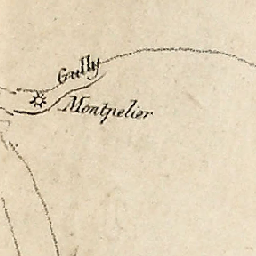 Gully
Montpelier